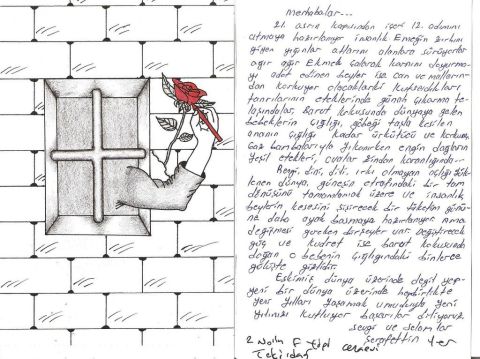 merhabalar...
21. asrın kapısından içeri 12. adımını
atmaya hazırlanıyor insanlık. Emeğin zırhını
giyen yığınlar atlarını alanlara sürüyorlar
ağır ağır. Ekmek çalarak karnını doyurma-
yı adet edinen beyler ise can ve malların-
dan korkuyor olacaklarki kutsadıkları
tanrılarının eteklerinde günah çıkarma te-
laşındalar. Barut kokusunda dünyaya gelen
bebeklerin çığlığı, göbeği taşla kesilen
ananın çığlığı kadar ürkütücü ve korkunç.
Gaz bombalarıyla yıkanırken engin dağların
yeşil etekleri, ovalar zindan karanlığında..
Rengi, dini, dili, ırkı olmayan açlığı yük-
lenen dünya, güneşin etrafındaki bir tam
dönüşünü tamamlamak üzere ve insanlık
beylerin kesesini şişirecek bir tüketim günü-
ne daha ayak basmaya hazırlanıyor. Ama
değişmesi gereken birşeyler var. Değiştirecek
güç ve kudret ise barut kokusunda
doğan o bebenin çığlığındaki binlerce
gülüşte gizlidir.
Eskimiş dünya üzerinde değil yep-
yeni bir dünya üzerinde hepbirlikte
yeni yılları yaşamak umuduyla yeni
yılınızı kutluyor başarılar diliyoruz.
sevgi ve selamlar
Şerafettin
2 Nolu F tipi cezaevi
Tekirdağ